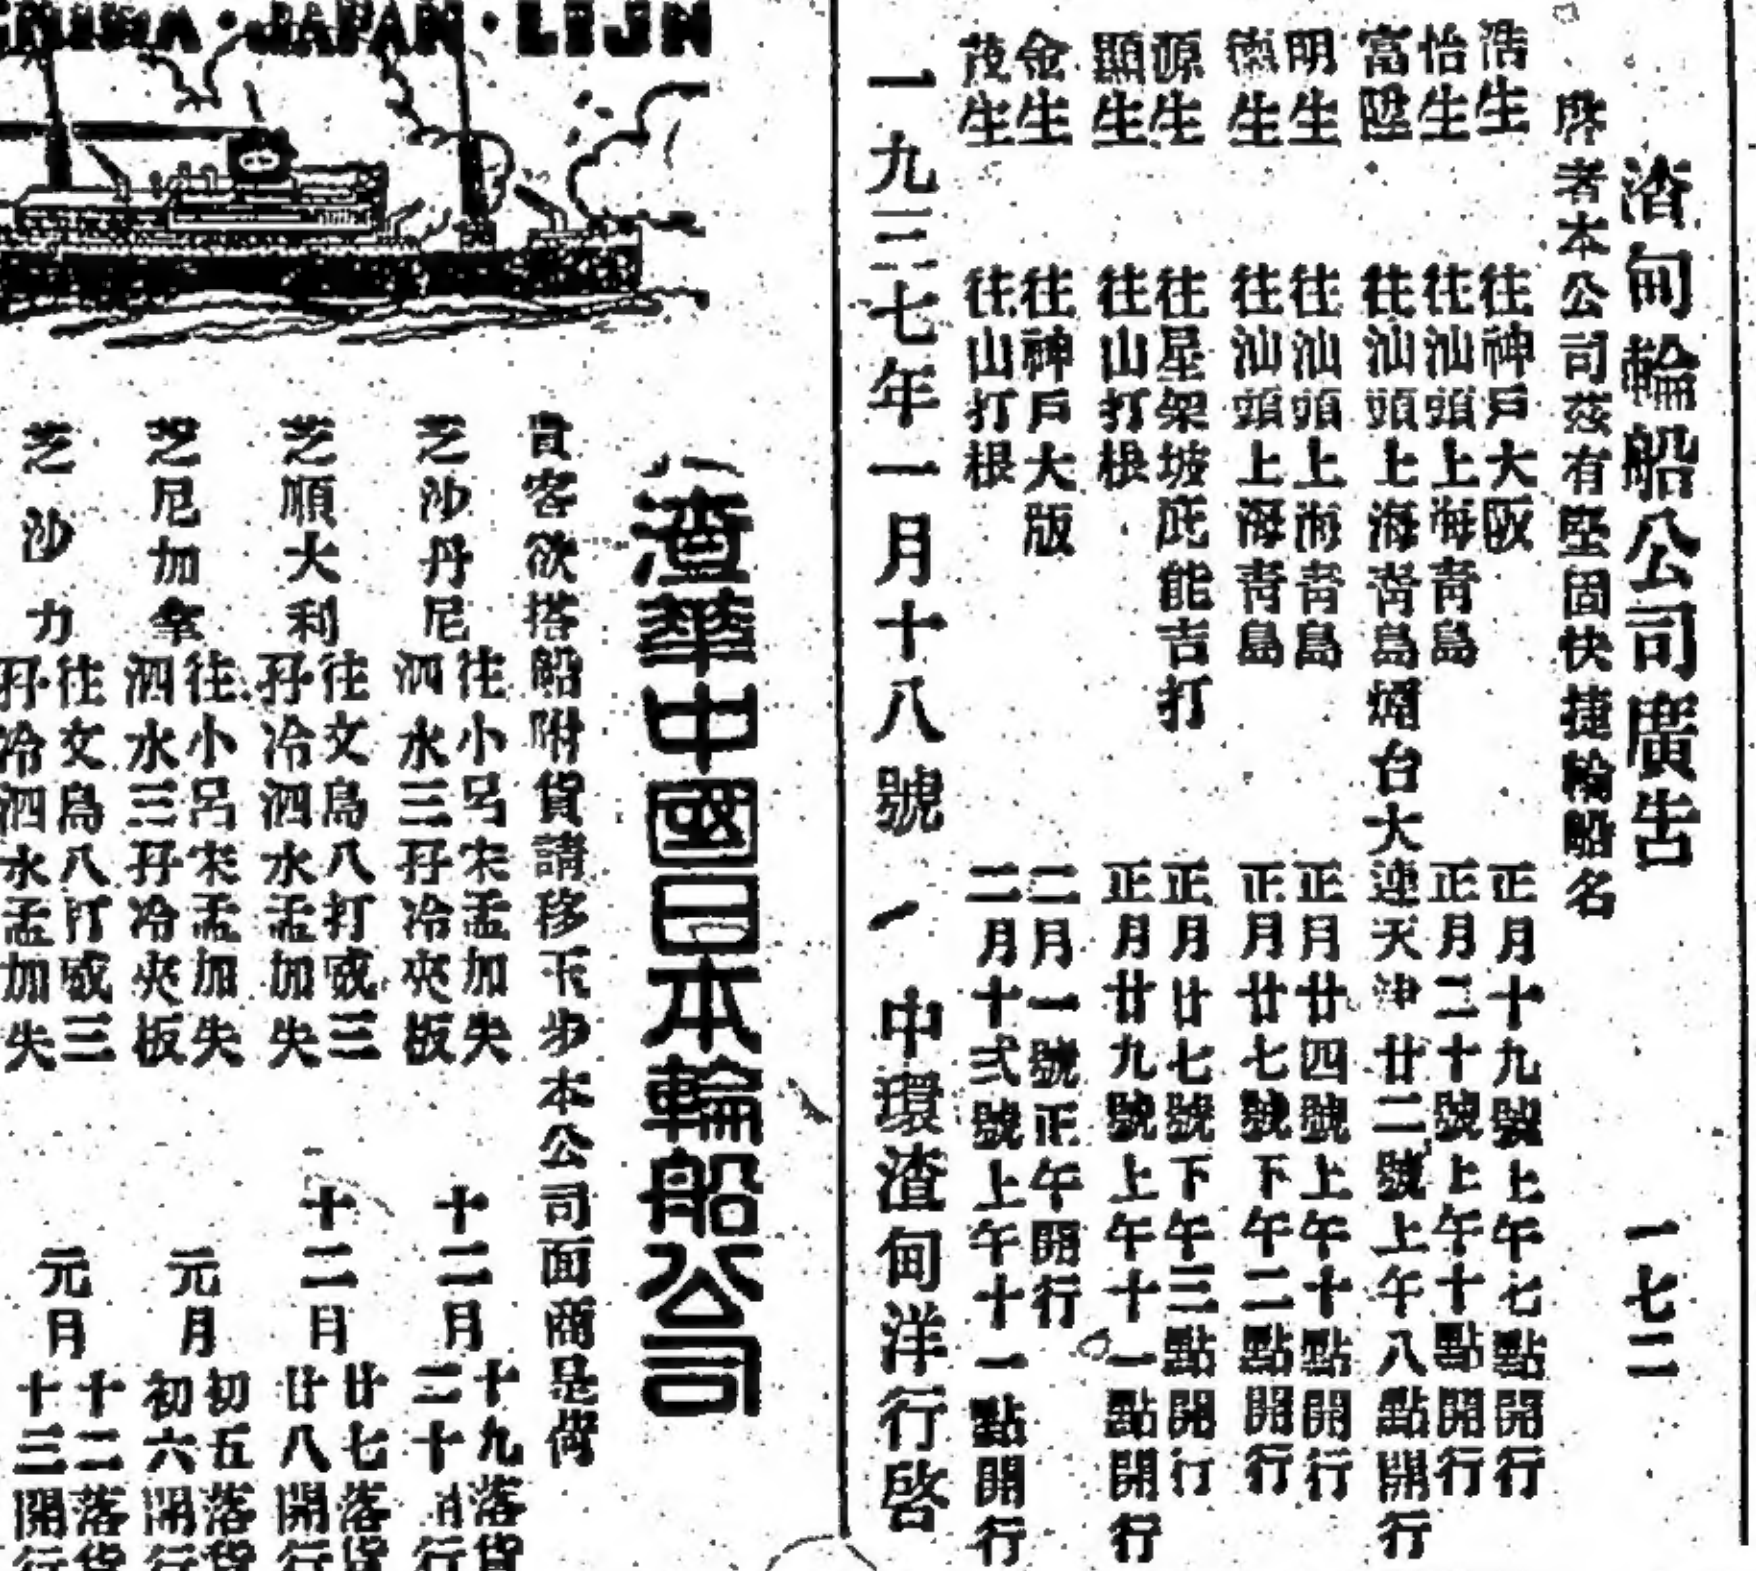 渣甸輪船公司廣告 一七二
啓者本公司茲有堅固快捷輪船名
浩生 往神戶大阪 正月十九號上午七點開行
怡生 往汕頭上海靑島 正月二十號上午十點開行
富陞 往汕頭上海靑島烟台大連天津 廿二號上午八點開行
明生 往汕頭上海靑島 正月廿四號上午十點開行
德生 往汕頭上海靑島 正月廿七號下午二點開行
源生 往星架坡庇能吉打 正月廿七號下午三點開行
顯生 往山打根 正月廿九號上午十一點開行
金生 往神戶大版 二月一號正午開行
茂生 往山打根 二月十弍號上午十一點開行
一九三七年一月十八號 中環渣甸洋行啓
JAPAN·LIJN
渣華中國日本輪船公司
貴客欲搭船附貨請移玉步本公司面商是荷
芝沙丹尼 往小呂宋孟加失 泗水三孖冷夾板 十二月 十九落貨 二十開行
芝順大利 往文島八打威三 孖冷泗水孟加失 十二月 廿七落貨 廿八開行
芝尼加拿 往小呂宋孟加失 泗水三孖冷夾板 元月 初五落貨 初六開行
芝沙力 往文島八打威三 孖冷泗水孟加失 元月 十二落貨 十三開行